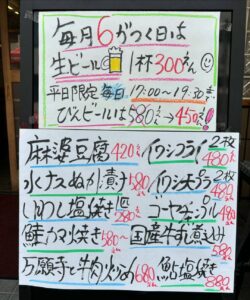 毎月6がつく日は
生ビール 1杯300えん
平日限定 毎日 17:00~19:30まで
びんビールは580えん→450えん!
麻婆豆腐420えん
イワシフライ2枚480えん
水ナスぬか漬け580
イワシ天ぷら2枚480
いわし塩焼き1匹280えん
ゴーヤチャンプル480
鮭カマ焼き580~
国産牛すじ煮込み580
万願寺と牛肉炒め680
鮎塩焼き880